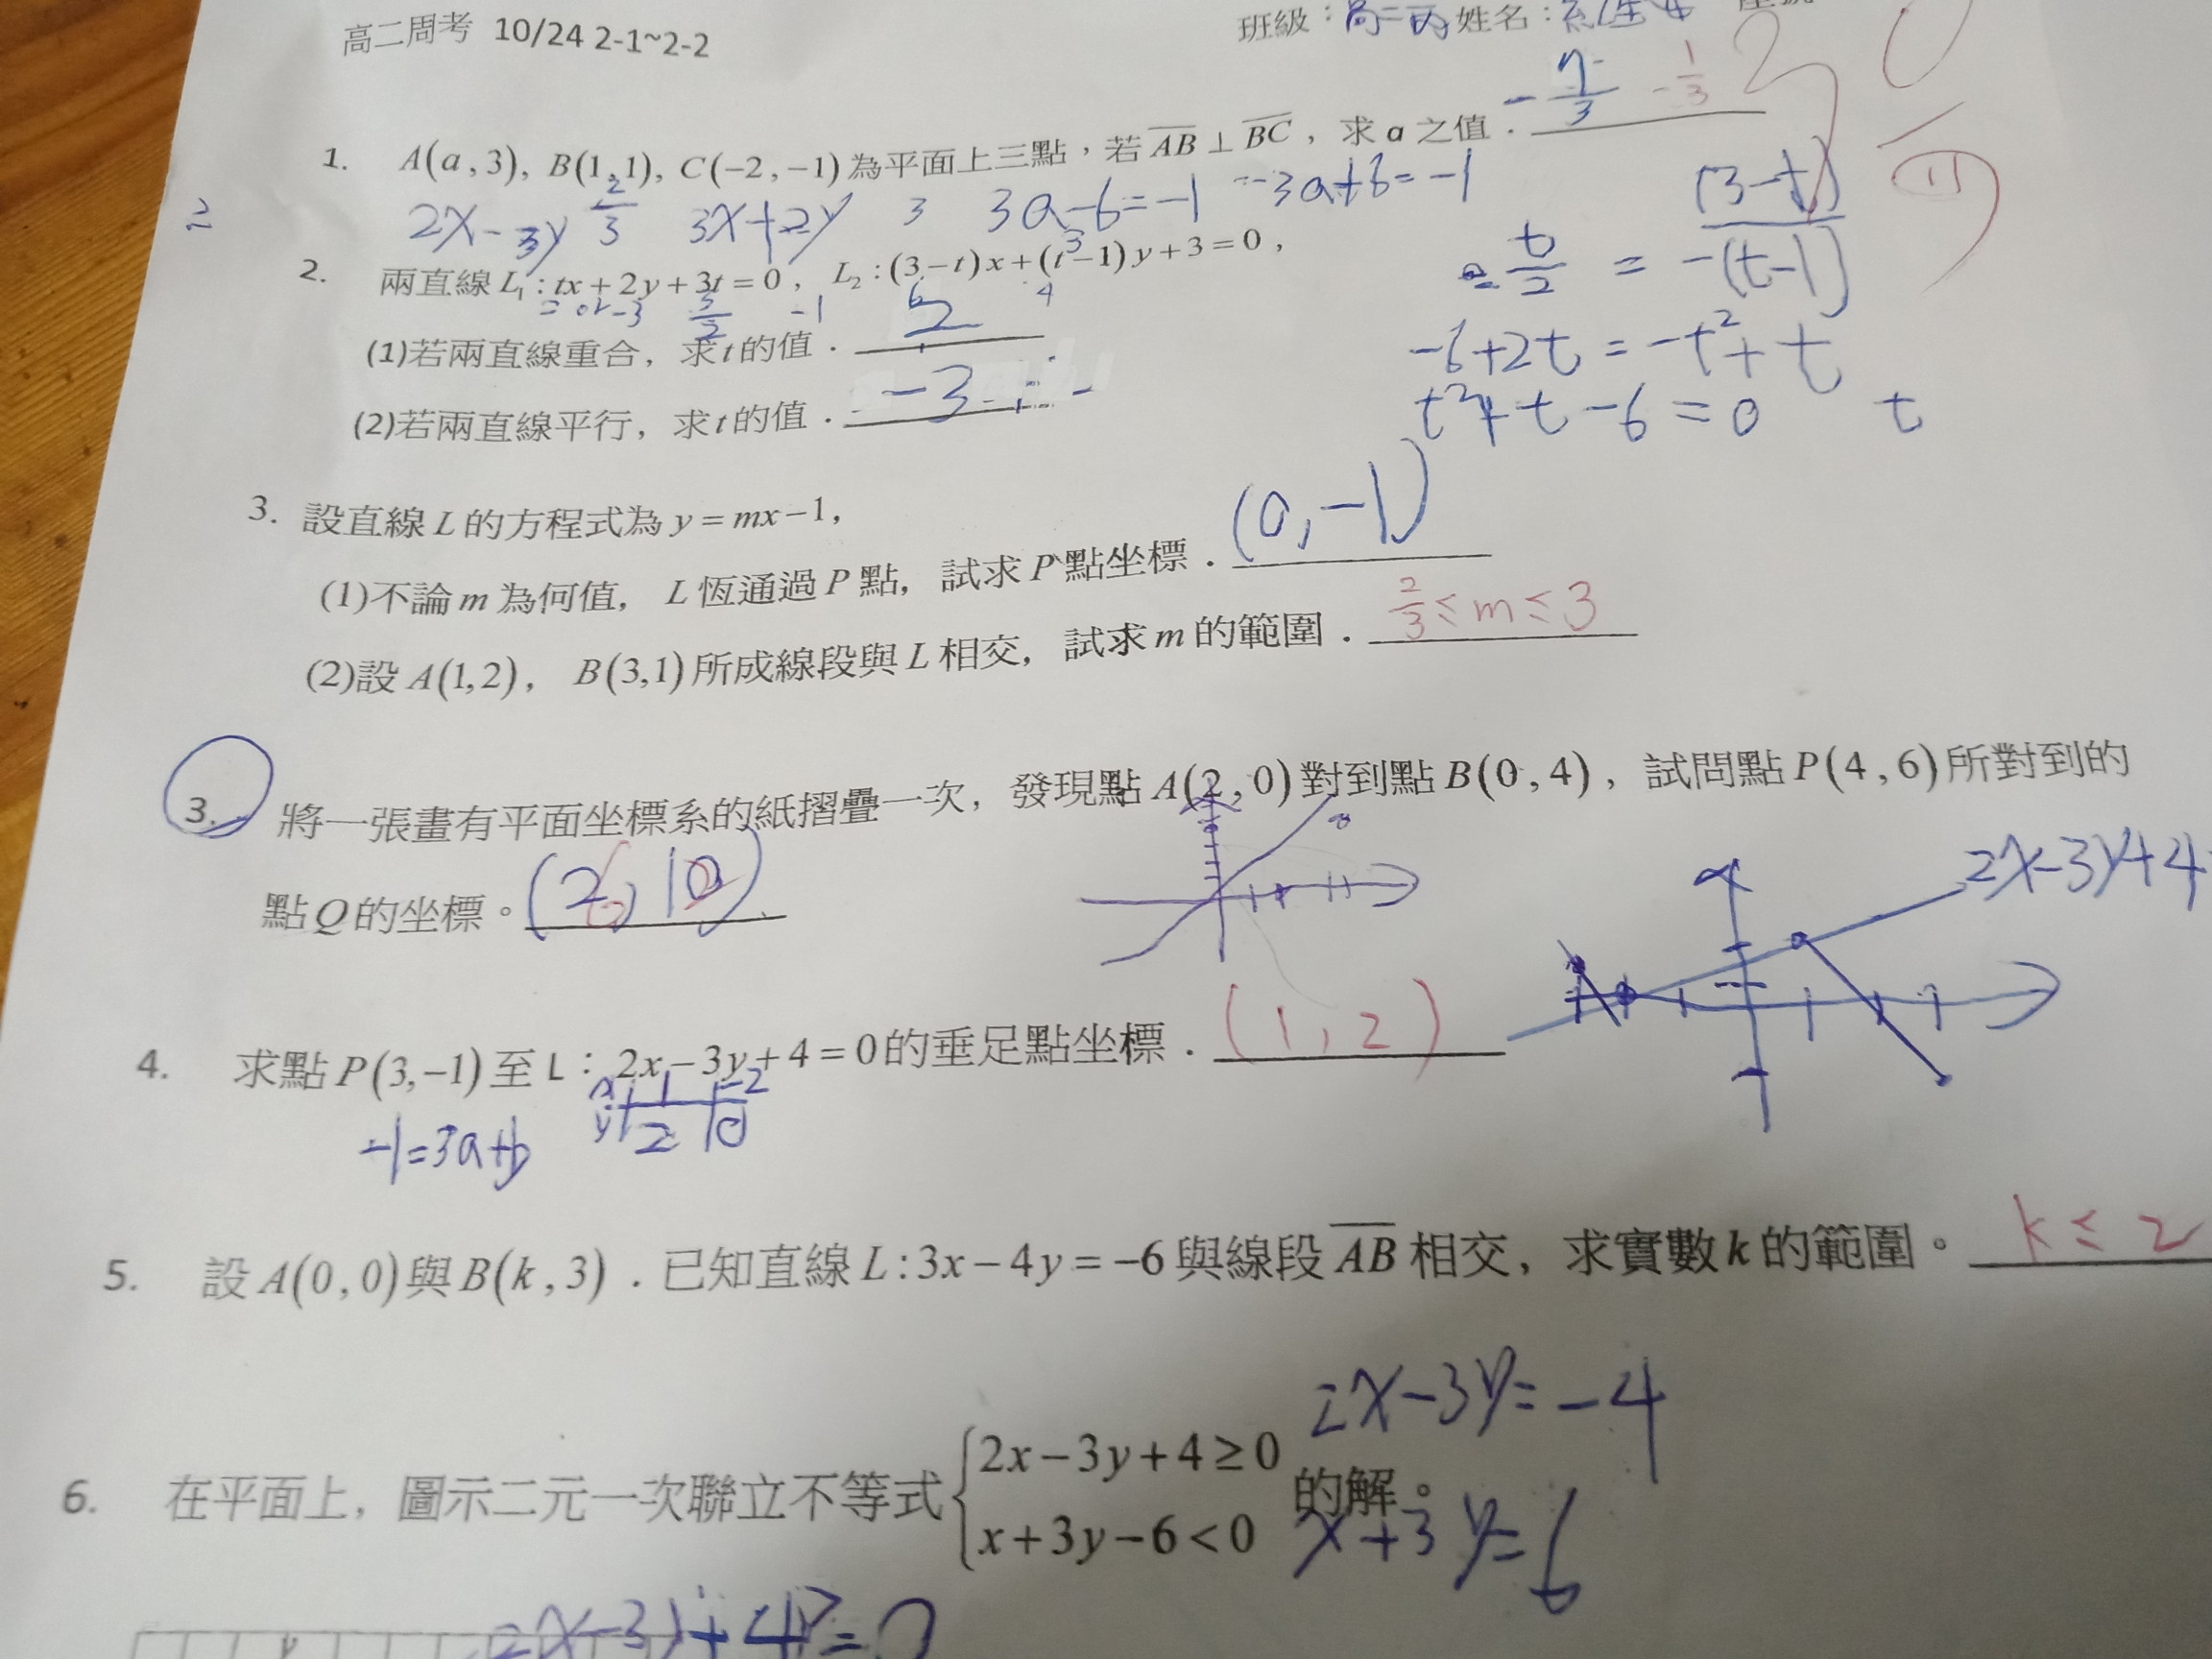 高二周考 10/24 2-1~2-2
班級：高二丙 姓名：
1. A(a,3), B(1,1), C(-2,-1)為平面上三點，若AB⊥BC，求a之值． -1/3
2x-3y 2/3 3x+2y 3 3a-6=-1 -3a+6=-1
2. 兩直線L₁:tx+2y+3t=0，L₂:(3-t)x+(t-1)y+3=0，
(1)若兩直線重合，求t的值． 2
(2)若兩直線平行，求t的值． -3
t/2 = (3-t)/-(t-1)
-6+2t=-t²+t
t²+t-6=0 t
3. 設直線L的方程式為y=mx-1，
(1)不論m為何值，L恆通過P點，試求P點坐標． (0,-1)
(2)設A(1,2)，B(3,1)所成線段與L相交，試求m的範圍． 2/3≤m≤3
3. 將一張畫有平面坐標系的紙摺疊一次，發現點A(2,0)對到點B(0,4)，試問點P(4,6)所對到的
點Q的坐標。
2x-3y+4
4. 求點P(3,-1)至L：2x-3y+4=0的垂足點坐標． (1,2)
x 1 -2
y 2 0
-1=3a+b
5. 設A(0,0)與B(k,3)．已知直線L:3x-4y=-6與線段AB相交，求實數k的範圍。 k≤2
6. 在平面上，圖示二元一次聯立不等式{2x-3y+4≥0 x+3y-6<0 的解。
2x-3y=-4
x+3y=6
2x-3y+4=0
y